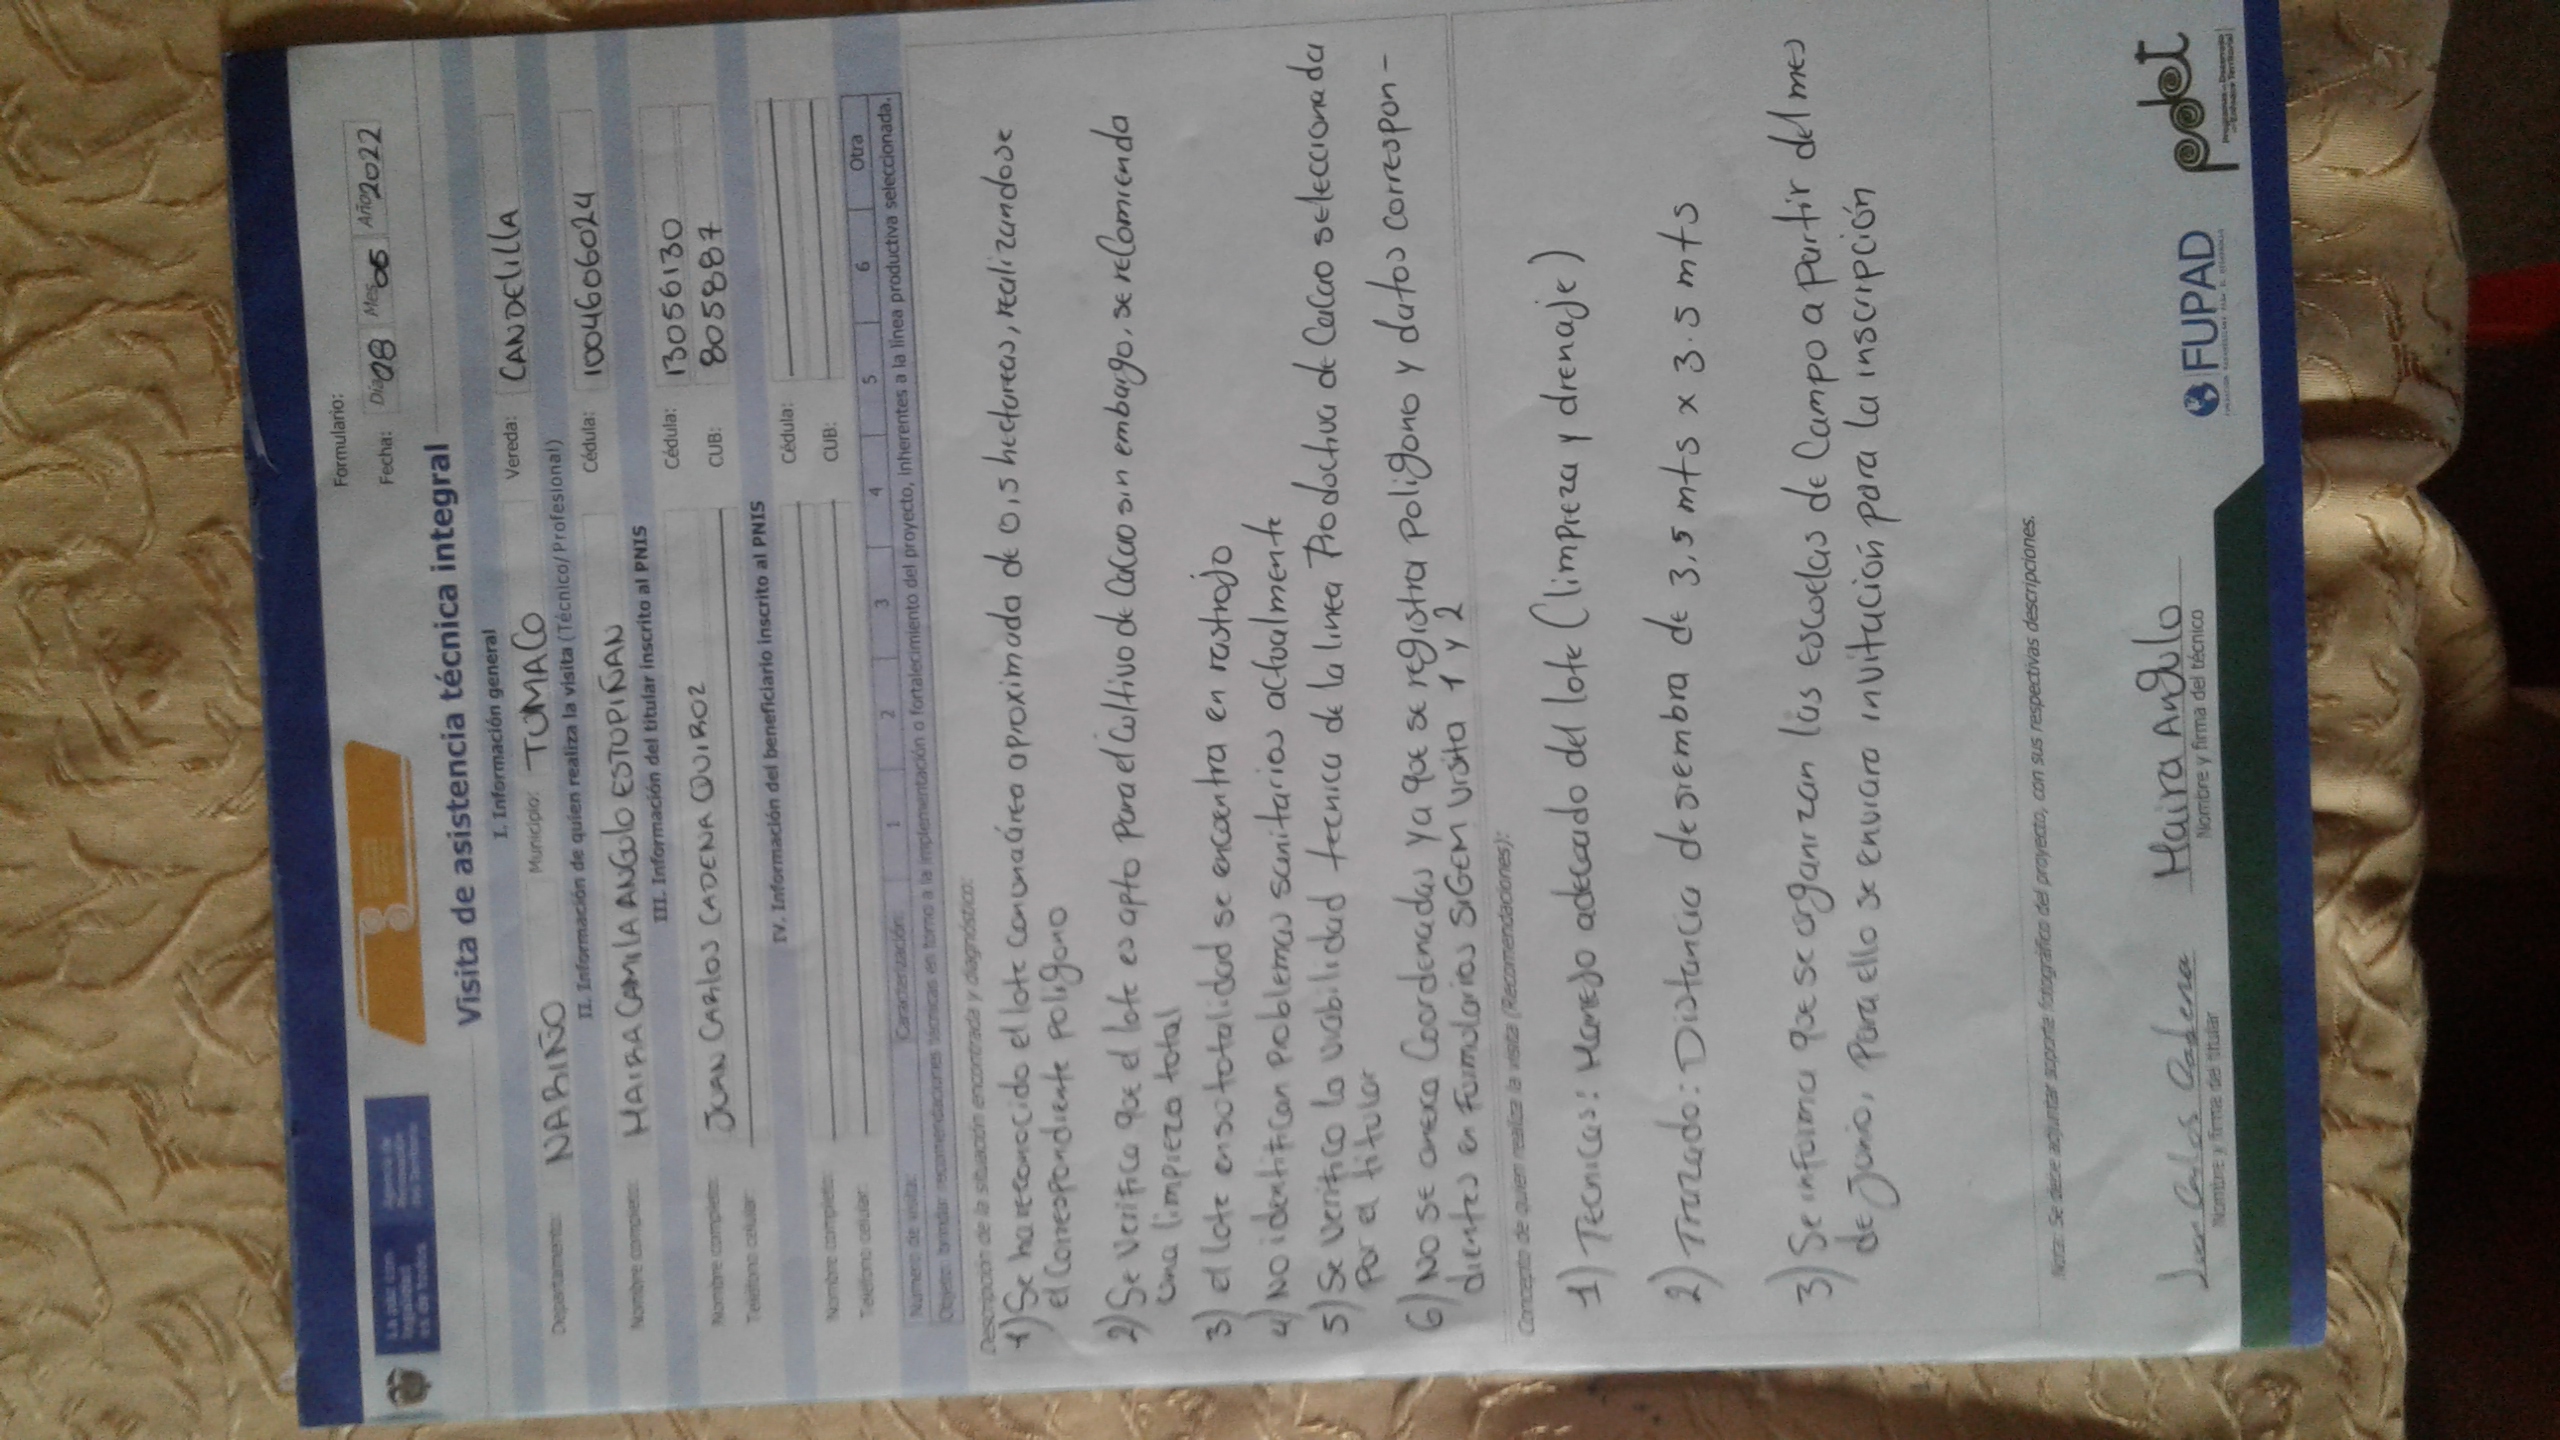 Formulario:
Fecha: Día 08 Mes 05 Año 2022
Visita de asistencia técnica integral
I. Información general
Departamento: NARIÑO Municipio: TUMACO Vereda: CANDELILLA
II. Información de quien realiza la visita (Técnico/Profesional)
Nombre completo: MAIRA CAMILA ANGULO ESTOPIÑAN Cédula: 1004606024
III. Información del titular inscrito al PNIS
Nombre completo: JUAN CARLOS CADENA QUIROZ Cédula: 13056130
Teléfono celular: CUB: 805887
IV. Información del beneficiario inscrito al PNIS
Nombre completo: Cédula:
Teléfono celular: CUB:
Número de visita: Caracterización: 1 2 3 4 5 6 Otra
Objeto: brindar recomendaciones técnicas en torno a la implementación o fortalecimiento del proyecto, inherentes a la línea productiva seleccionada.
Descripción de la situación encontrada y diagnóstico:
1) Se ha reconocido el lote con una área aproximada de 0,5 hectareas, realizandose
el correspondiente poligono
2) Se verifica que el lote es apto para el cultivo de cacao sin embargo, se recomienda
una limpieza total
3) el lote en su totalidad se encuentra en rastrojo
4) No identifican problemas sanitarios actualmente
5) Se verifico la viabilidad tecnica de la linea Productiva de Cacao seleccionada
Por el titular
6) No se anexa Coordenadas ya que se registra poligono y datos correspon-
dientes en Formularios SIGEM visita 1 y 2
Concepto de quien realiza la visita (Recomendaciones):
1) Tecnicas: Manejo adecuado del lote (limpieza y drenaje)
2) Trazado: Distancia de siembra de 3,5 mts x 3.5 mts
3) Se informa que se organizan las escuelas de Campo a partir del mes
de Junio, Para ello se enviara invitación para la inscripción
Nota: Se debe adjuntar soporte fotográfico del proyecto, con sus respectivas descripciones.
Juan Carlos Cadena Maira Angulo
Nombre y firma del titular Nombre y firma del técnico
FUPAD
pdet